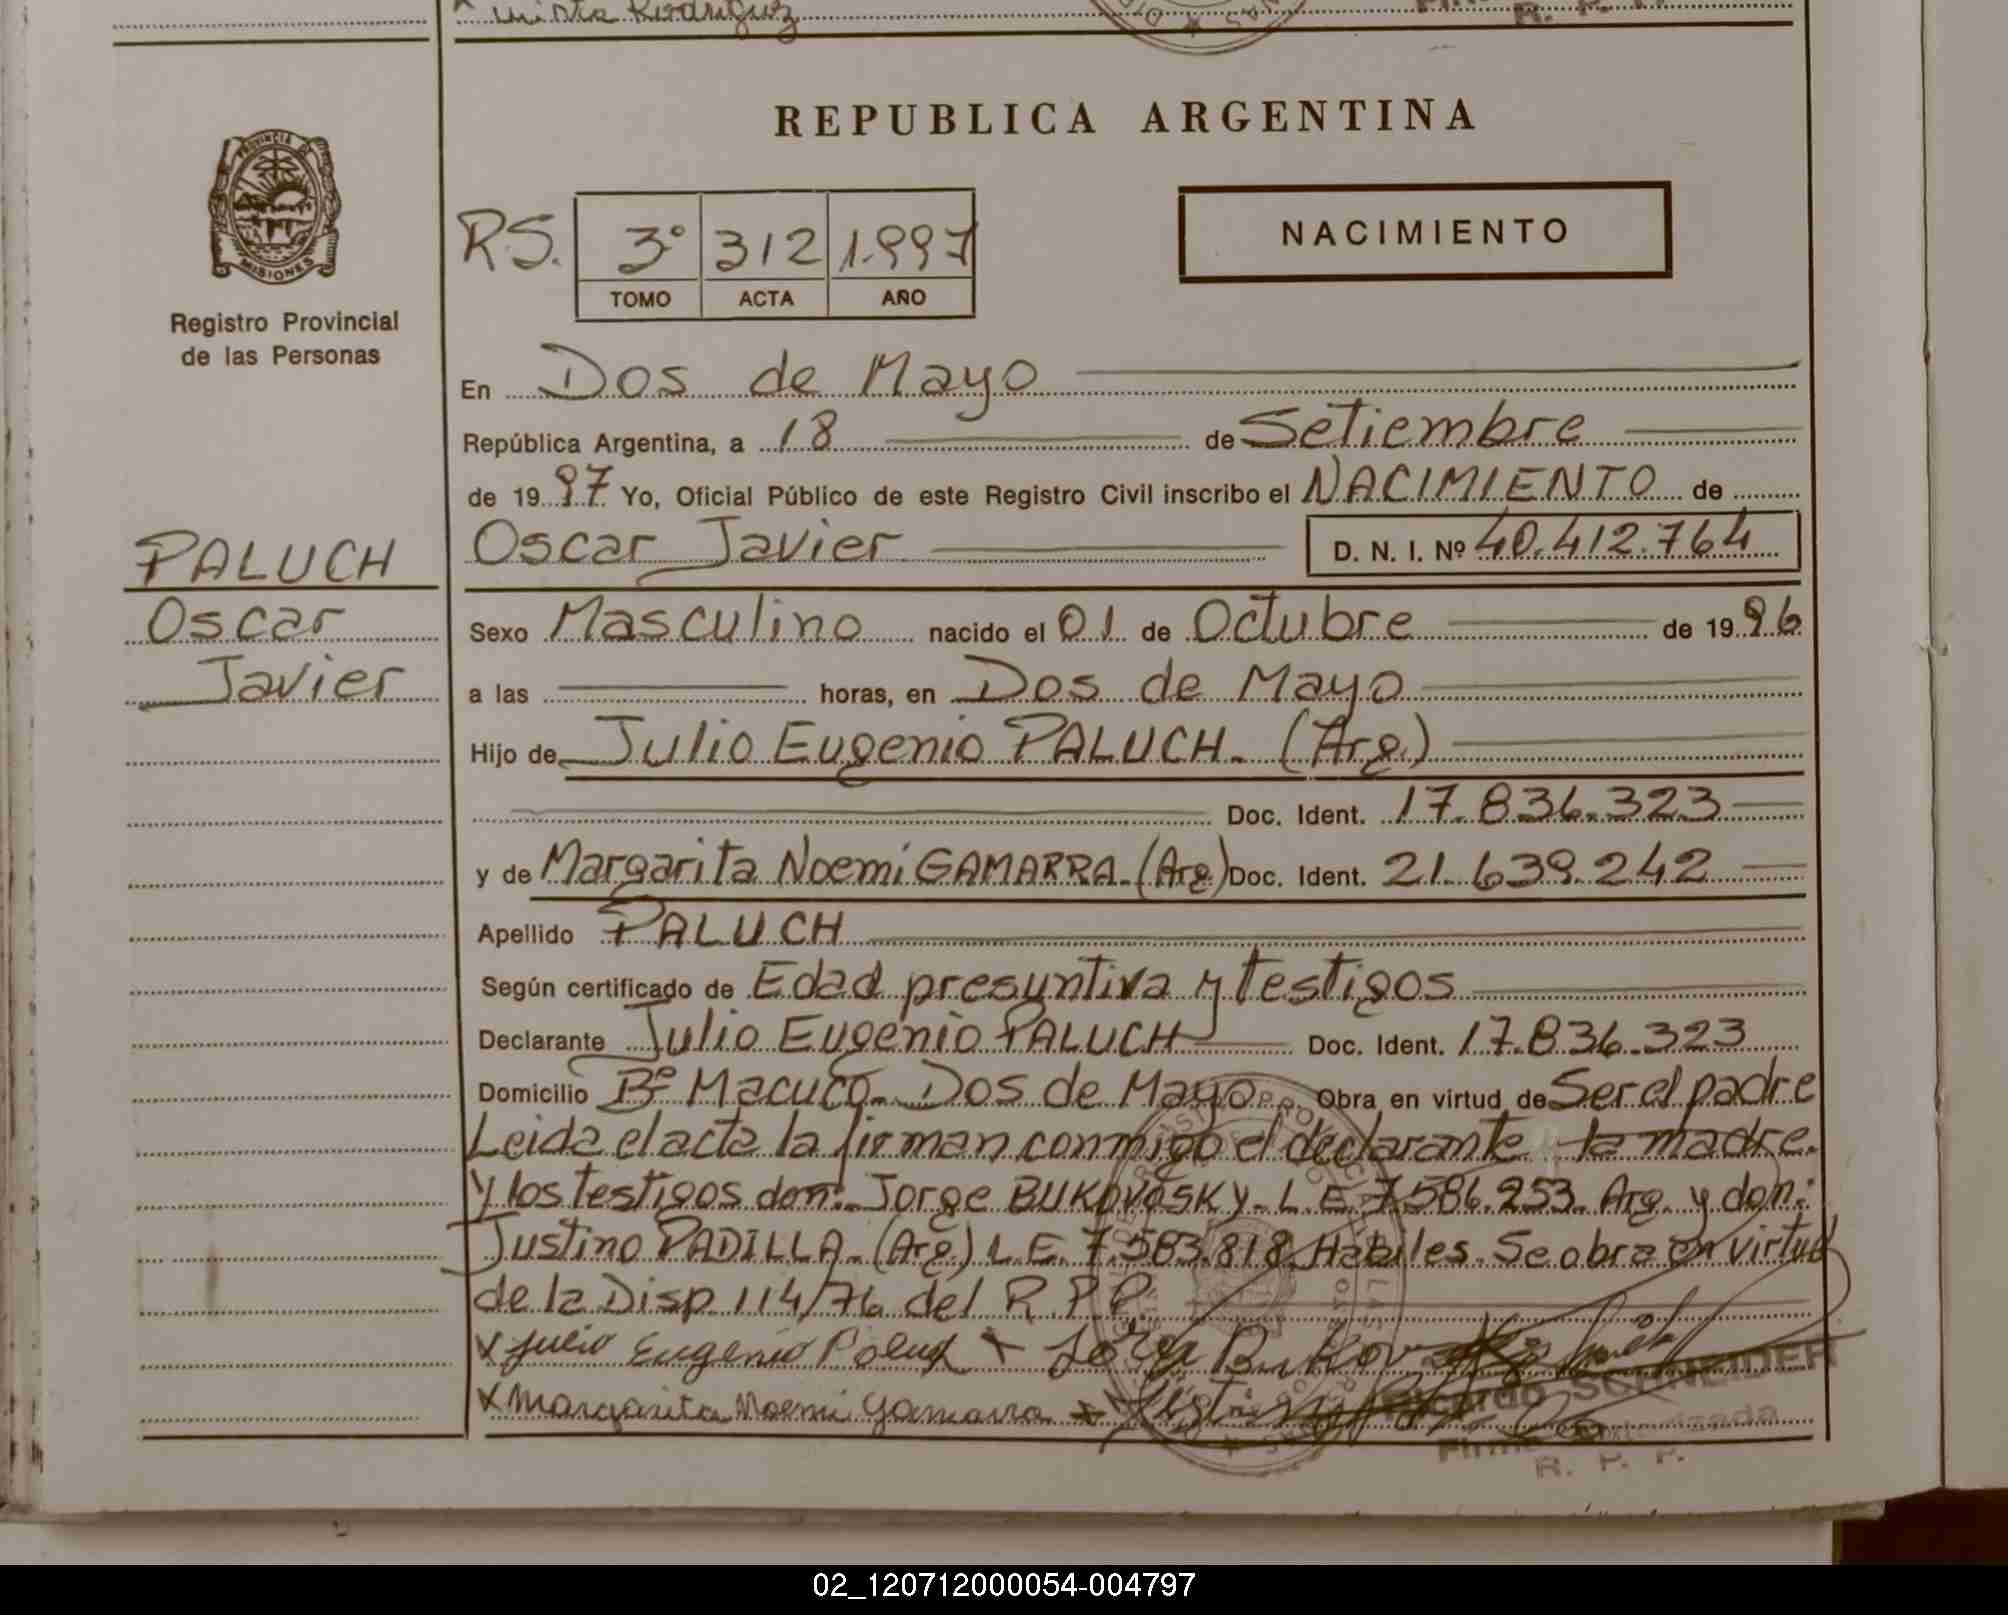 Mirta Rodriguez
R. P. P.
REPUBLICA ARGENTINA
PROVINCIA DE
MISIONES
Registro Provincial
de las Personas
R.S. 3° 312 1.997
TOMO ACTA AÑO
NACIMIENTO
En Dos de Mayo
República Argentina, a 18 de Setiembre
de 1997 Yo, Oficial Público de este Registro Civil inscribo el NACIMIENTO de
PALUCH
Oscar
Javier
Oscar Javier D. N. I. Nº 40.412.764
Sexo Masculino nacido el 01 de Octubre de 1996
a las horas, en Dos de Mayo
Hijo de Julio Eugenio PALUCH. (Arg.)
Doc. Ident. 17.836.323
y de Margarita Noemí GAMARRA. (Arg.) Doc. Ident. 21.639.242
Apellido PALUCH
Según certificado de Edad presuntiva y testigos
Declarante Julio Eugenio PALUCH Doc. Ident. 17.836.323
Domicilio Bº Macuco. Dos de Mayo. Obra en virtud de Ser el padre
Leida el acta la firman conmigo el declarante la madre.
y los testigos don: Jorge BUKOVOSKY. L.E. 7.586.253. Arg. y don:
Justino PADILLA. (Arg.) L.E. 7.583.818. Habiles. Se obra en virtud
de la Disp. 114/76 del R.P.P.
x Julio Eugenio Paluch x Jorge Bukov
x Margarita Noemi Gamarra x
Ricardo SCHNEIDER
Firma Autorizada
R. P. P.
02_120712000054-004797